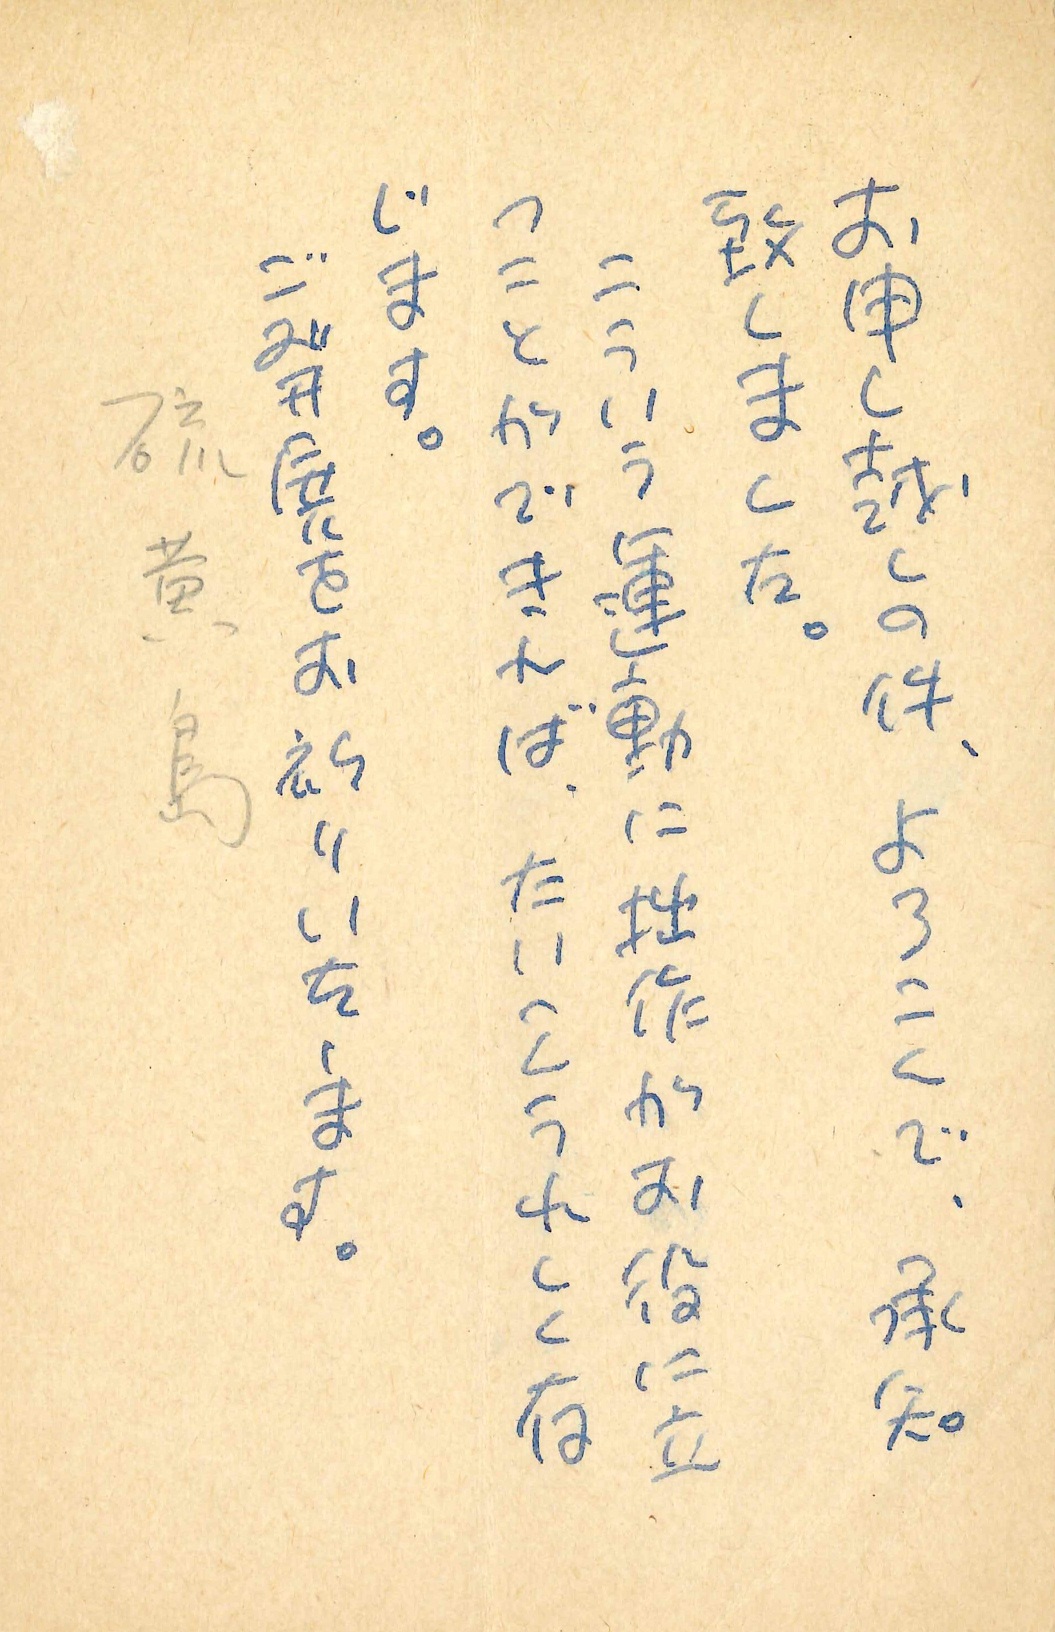 お申し越しの件、よろこんで、承知
致しました。
こういう運動に拙作がお役に立
つことができれば、たいへんうれしく存
じます。
ご成功をお祈りいたします。
硫黄島